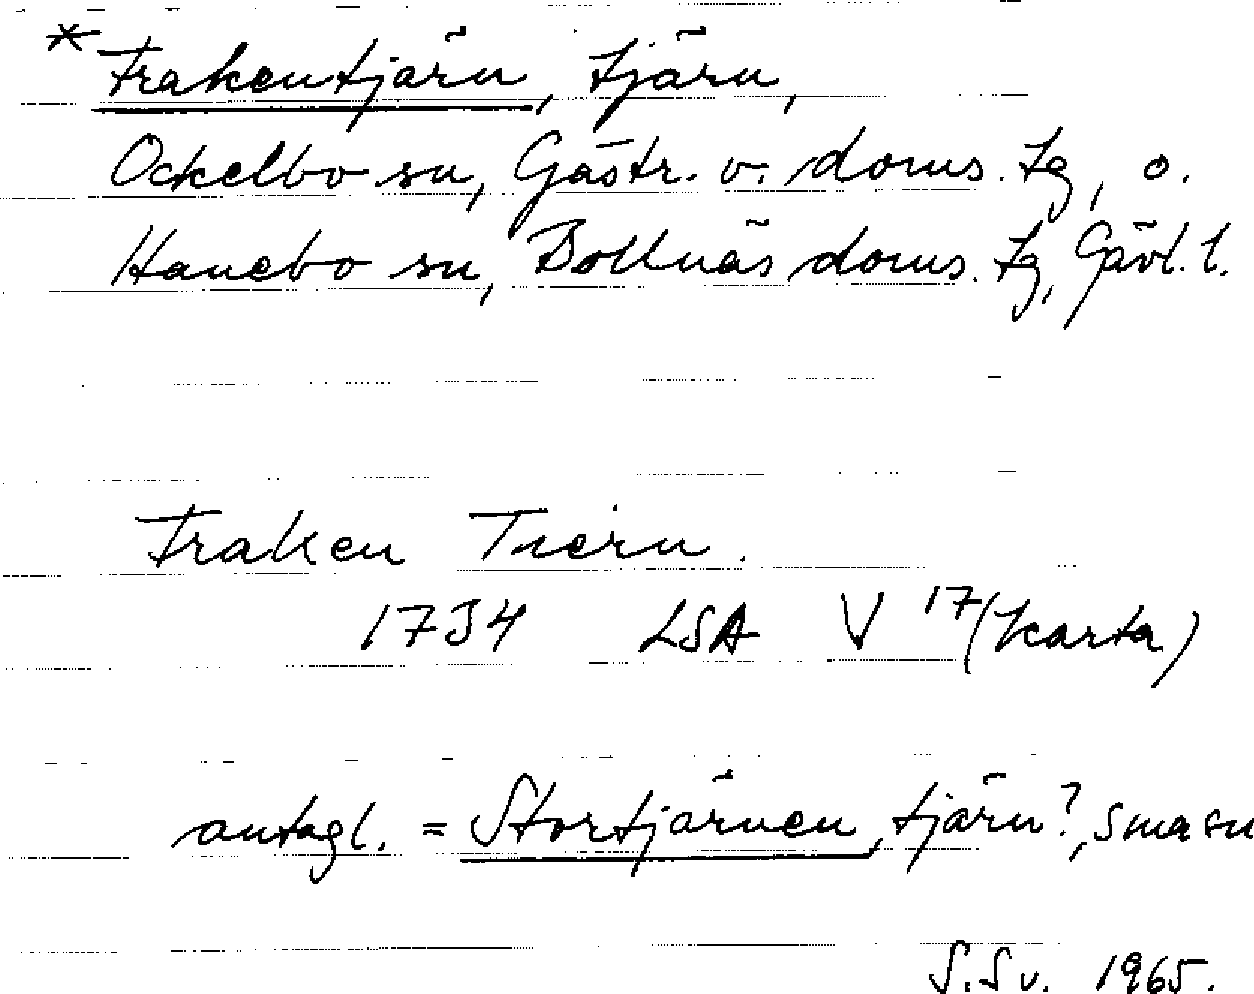 *Frakentjärn, tjärn,
Ockelbo sn, Gästr. v. doms. tg, o.
Hanebo sn, Bollnäs doms. tg, Gävl. l.
Fraken Tiern.
1734 LSA V 17 (karta)
antagl. = Stortjärnen, tjärn?, smasn
S.Sv. 1965.